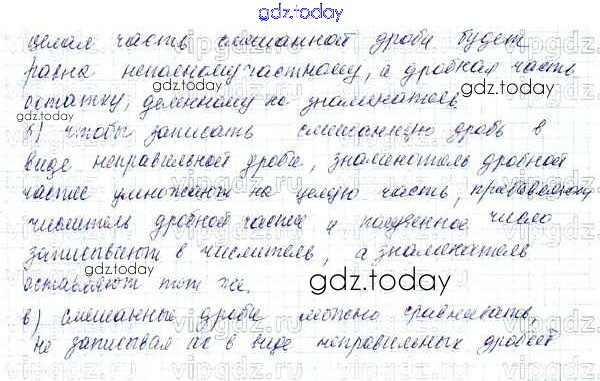 gdz.today
целая часть смешанной дроби будет
равна неполному частному, а дробная часть
остатку, деленному на знаменатель
gdz.today
gdz.today
б) чтобы записать смешанную дробь в
виде неправильной дроби, знаменатель дробной
части умножают на целую часть, прибавляют
числитель дробной части и полученное число
записывают в числитель, а знаменатель
gdz.today
оставляют тот же.
gdz.today
в) смешанные дроби можно сравнивать,
не записывая их в виде неправильных дробей